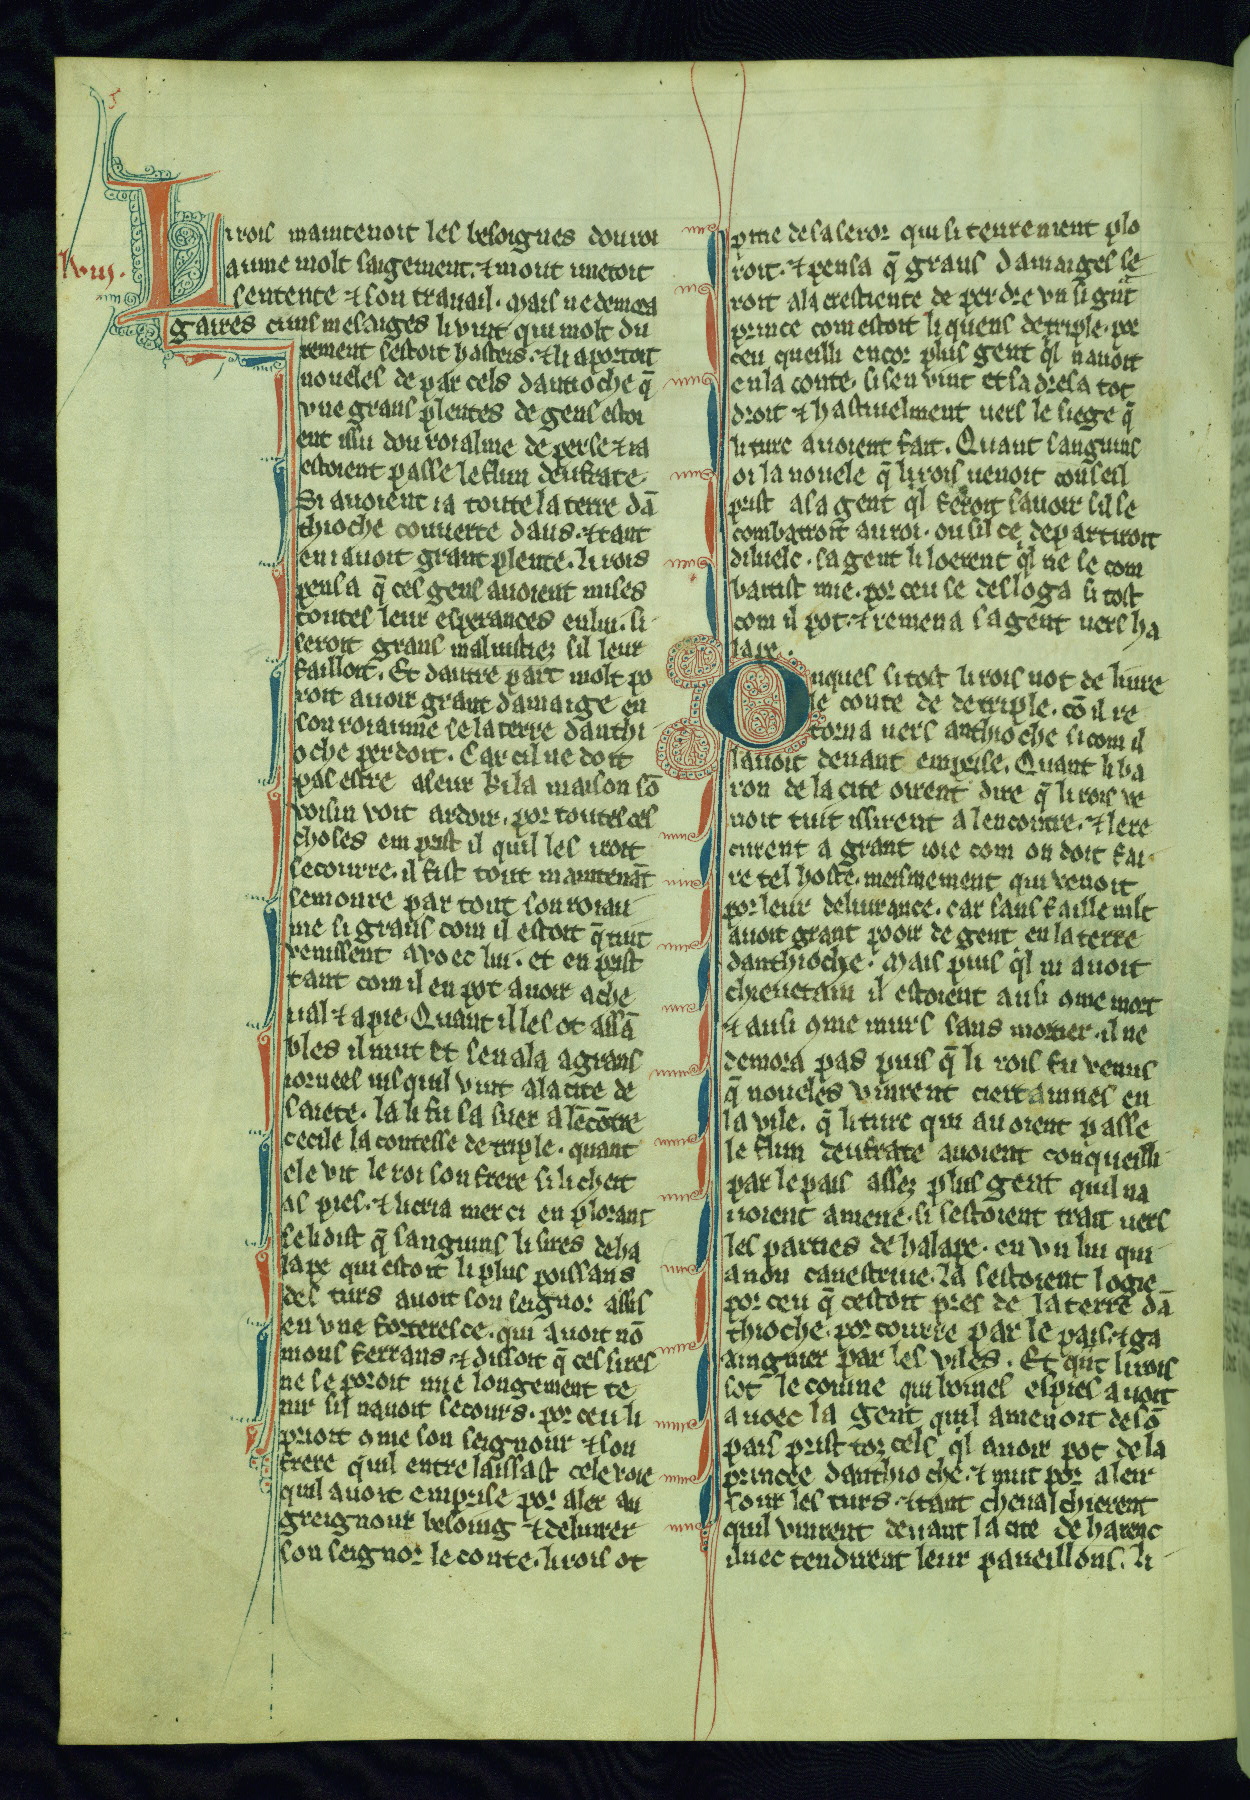 Li rois maintenoit les besoignes dou roi
aume molt saigement. ⁊ mout metoit
sentente ⁊ son travail. Mais ne demora
gaires cuns mesaiges li vint qui molt du
rement sestoit hasteis. ⁊ li aportoit
noueles de par cels dantioche q̄
vne grans plentes de gens estoi
ent issu dou roialme de perse ⁊ ia
estoient passe le flun deufrate.
Si auoient ia toute la terre dā
thioche couuerte daus. ⁊ tant
en i auoit grant plente. li rois
pensa q̄ ces gens auoient mises
toutes leur esperances en lui. si
seroit grans malvistiez sil leur
failloit. Et dautre part molt po
roit auoir grant damaige en
son roiaume se la terre danthi
oche perdoit. Car cil ne doit
pas estre aseur ki la maison sō
voisin voit ardoir. por toutes ces
choses em prist il quil les iroit
secourre. il fist tout maintenāt
semonre par tout son roiau
me si grans com il estoit q̄ tuit
venissent avoec lui. et en prist
tant com il en pot auoir a che
ual ⁊ a pie. Quant il les ot assā
bles il mut et sen ala a grans
iornees iusquil vint a la cite de
saiete. la li fu sa suer a lēcōtre
cecile la contesse de triple. quant
ele vit le roi son frere si li cheit
as pies. ⁊ li cria merci en plorant
se li dist q̄ sanguins li sires de ha
lape qui estoit li plus poissans
des turs auoit son seignor assis
en vne forteresce. qui auoit nō
mons ferrans. ⁊ dissoit q̄ ces sires
ne se poroit mie longement te
nir sil nauoit secours. por ceu li
prioit ome son seignour ⁊ son
frere quil entrelaissast cele voie
quil auoit emprise por aler au
greignour besoing ⁊ deliurer
son seignor le conte. li rois ot
pitie de sa seror qui si tenrement plo
roit. ⁊ pensa q̄ grans damaiges se
roit a la crestiente de perdre vn si grāt
prince com estoit li quens de triple. por
ceu queilli encor plus gent ql nauoit
en la conte. si sen vint et sadresa tot
droit ⁊ hastiuelment uers le siege q̄
li turc auoient fait. Quant sanguins
oi la nouele q̄ li rois uenoit conseil
prist a sa gent ql feroit sauoir sil se
combatroit au roi. ou sil ce departiroit
diluelc. sa gent li loerent ql ne se com
batist mie. por ceu se desloga si tost
com il pot. ⁊ remena sa gent uers ha
lape.
Onques si tost li rois not deliure
le conte de de triple. cō il re
torna uers anthioche si com il
lauoit deuant emprise. Quant li ba
ron de la cite oirent dire q̄ li rois ve
noit tuit issirent a lencontre. ⁊ le re
curent a grant ioie com on doit fai
re tel hoste. meismement qui venoit
por leur deliurance. car sans faille mlt
auoit grant pooir de gent en la terre
danthioche. Mais puis ql ni auoit
chieuetain il estoient ausi ome mort
⁊ ausi ome murs sans mortier. il ne
demora pas puis q̄ li rois fu venus
q̄ noueles vinrent ciertainnes en
la vile. q̄ li turc qui auoient passe
le flun deufrate auoient conqueilli
par le pais assez plus gent quil na
uoient amene. si sestoient trait uers
les parties de halape. en vn liu qui
a non canestriue. La sestoient logie
por ceu q̄ cestoit pres de la terre dā
thioche. por courre par le pais. ⁊ ga
aingnier par les viles. Et qāt li rois
sot le couine qui boines espies auoit
auoec la gent quil amenoit de sō
pais prist toz cels ql auoir pot de la
princee danthioche. ⁊ mut por aleir
sour les turs. ⁊ tant cheualchierent
quil vinrent deuant la cite de harenc
iluec tendirent leur paueillons. li